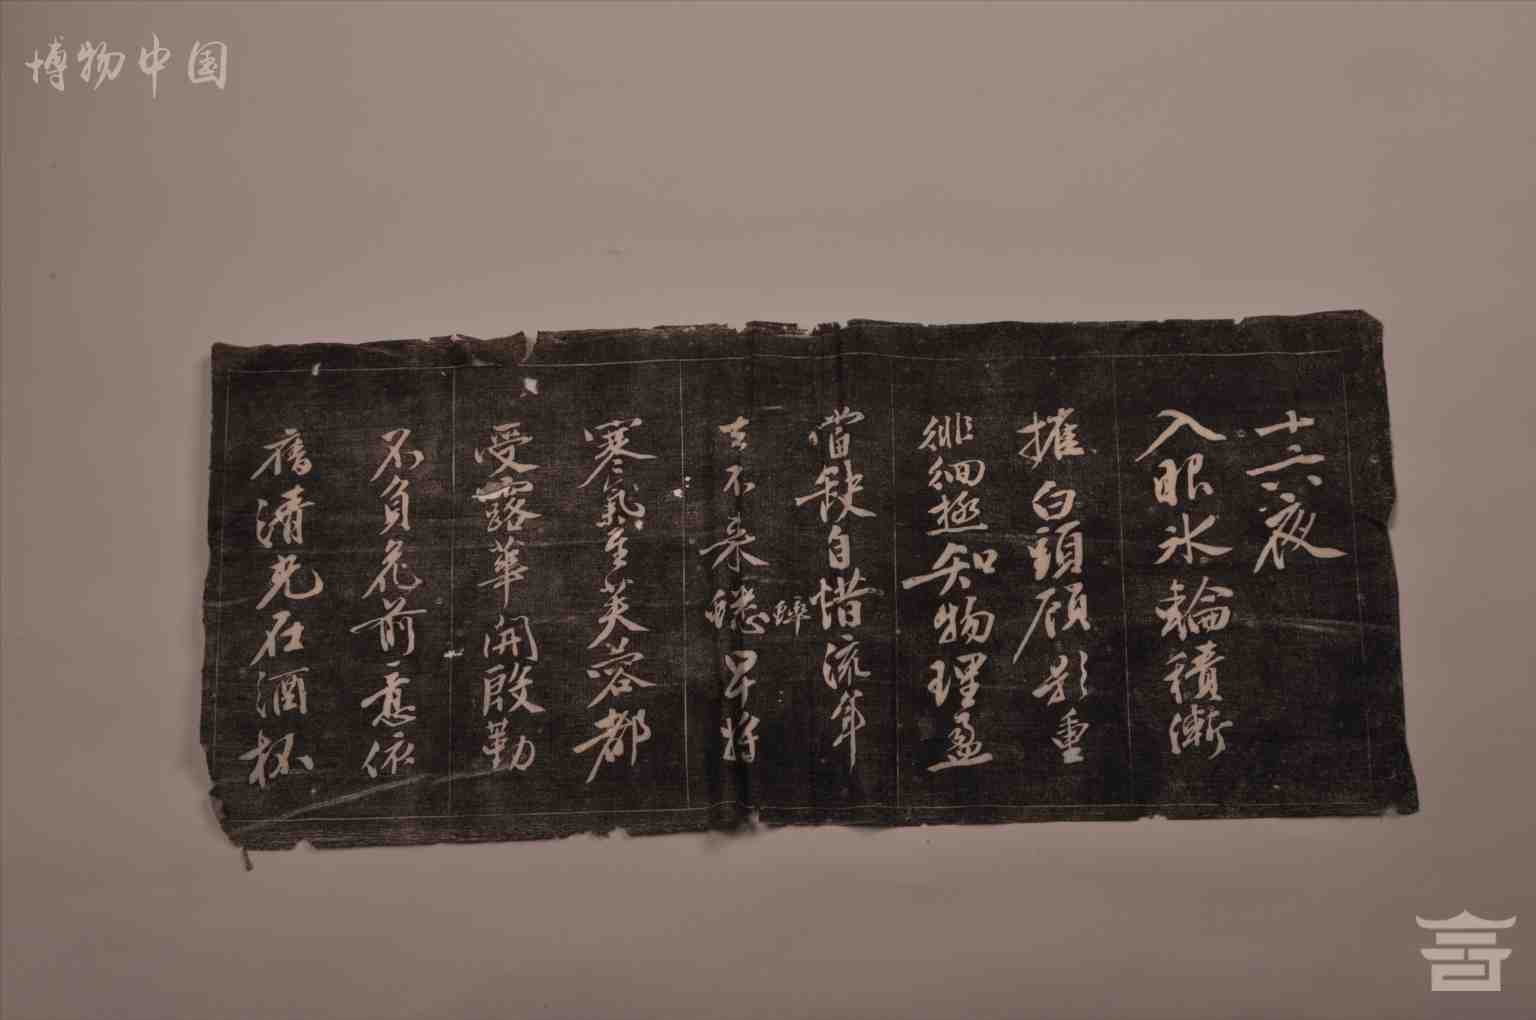 博物中国
十六夜
入眼冰輪積漸
摧白頭顧影重
徘徊極知物理盈
當缺自惜流年
去不来蟋蟀早將
寒氣至芙蓉都
受露華開殷勤
不負花前意依
舊清光在酒杯